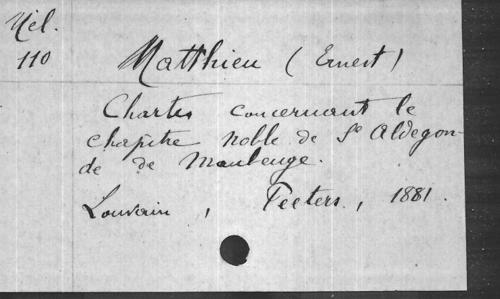 Mél.
110
Matthieu (Ernest)
Chartes concernant le
chapitre noble de Se Aldegon-
de de Maubeuge.
Louvain, Peeters, 1881.